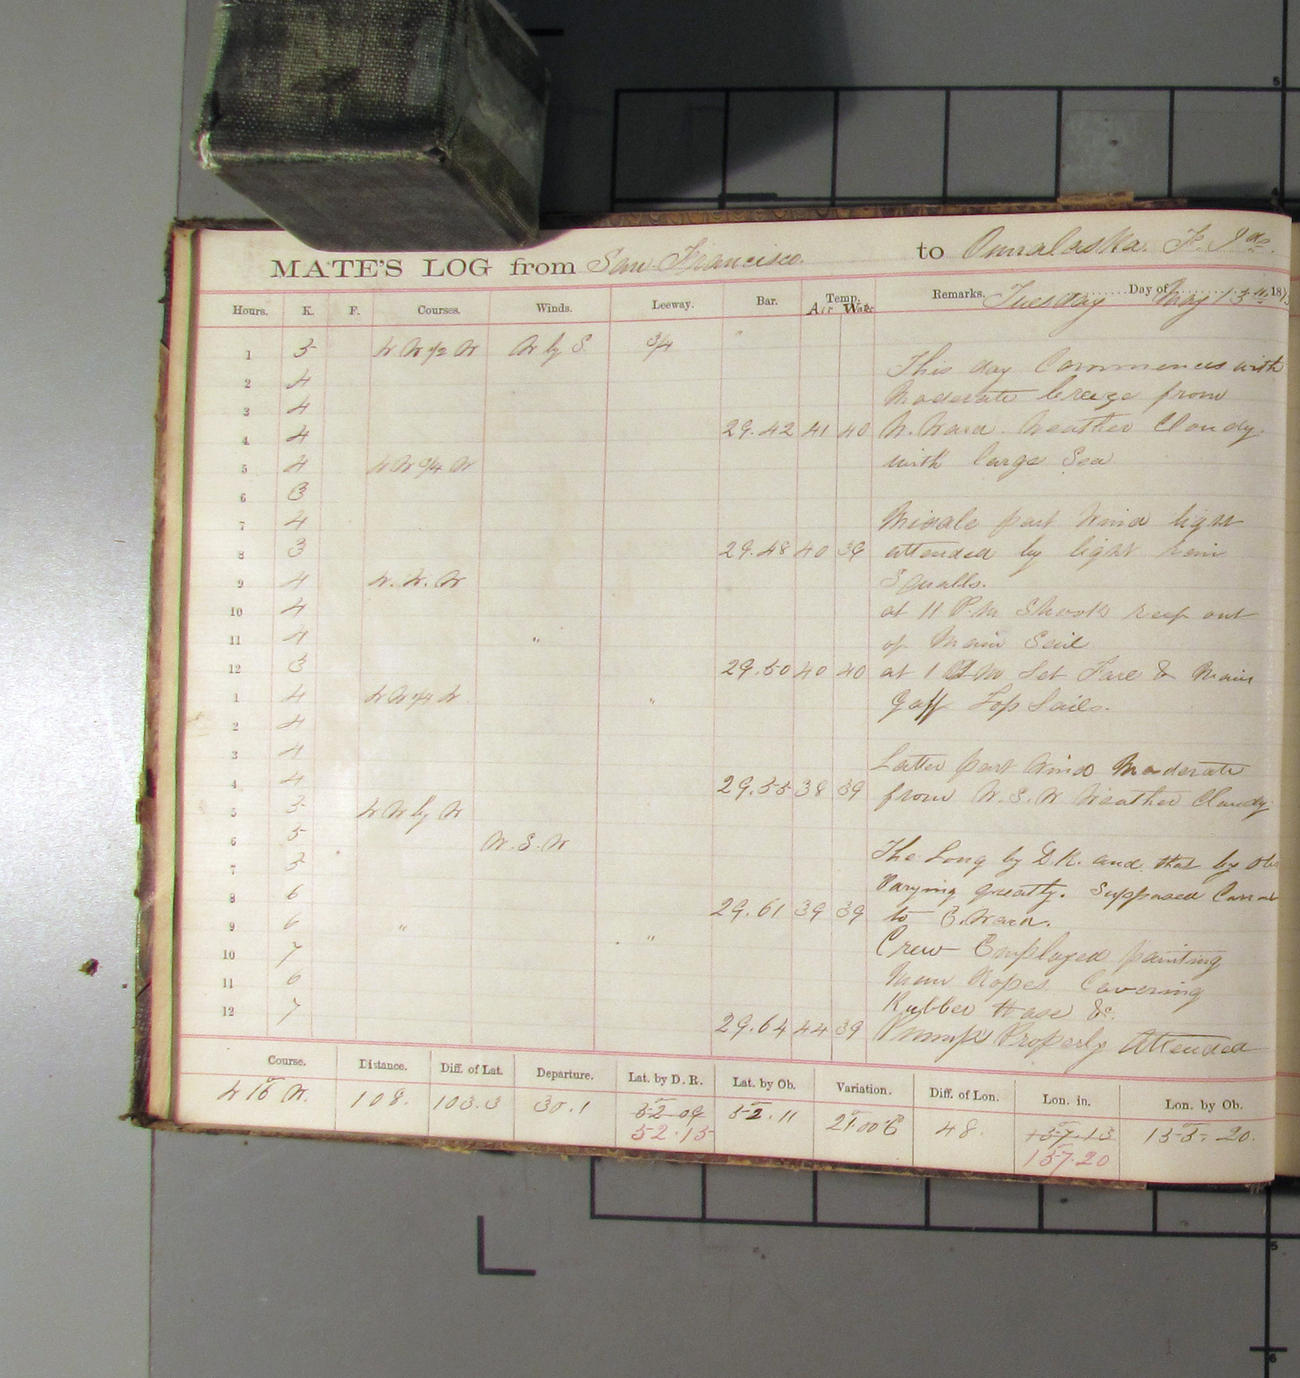 MATE'S LOG from San Francisco. to Ounalaska.
Hours. K. F. Courses. Winds. Leeway. Bar. Temp. Remarks. Tuesday Day of May 13th 18
Air Water
1 5 N W 1/2 W W by S 3/4
This day Commences with
2 4
Moderate breeze from
3 4
4 4 29.42 41 40 W. Ward. Weather Cloudy.
5 4 N W 3/4 W with large Sea
6 3
7 4 Middle part Wind light
8 3 29.48 40 39 attended by light rain
9 4 N. N. W Squalls.
10 4 at 11 P.M Shook reef out
11 4 " of Main Sail
12 3 29.50 40 40 at 1 A M Set Fore & Main
1 4 N W 1/4 N " Gaff Top Sails.
2 4
3 4 Latter part Wind Moderate
4 4 29.55 38 39 from W. S. W Weather Cloudy.
5 5 N W by W
6 5 W. S. W The Long by D.R. and that by Obs
7 5 Varying greatly. Supposed Current
8 6 29.61 39 39 to E. Ward.
9 6 " " Crew Employed painting
10 7 Man Ropes Covering
11 6 Rubber Hose &c.
12 7 29.64 44 39 Pumps Properly Attended
Course. Distance. Diff. of Lat. Departure. Lat. by D. R. Lat. by Ob. Variation. Diff. of Lon. Lon. in. Lon. by Ob.
N 16° W. 108. 103.3 30.1 52.09 52.11 21.00 E 48. 157.13 155.20.
52.15 157.20